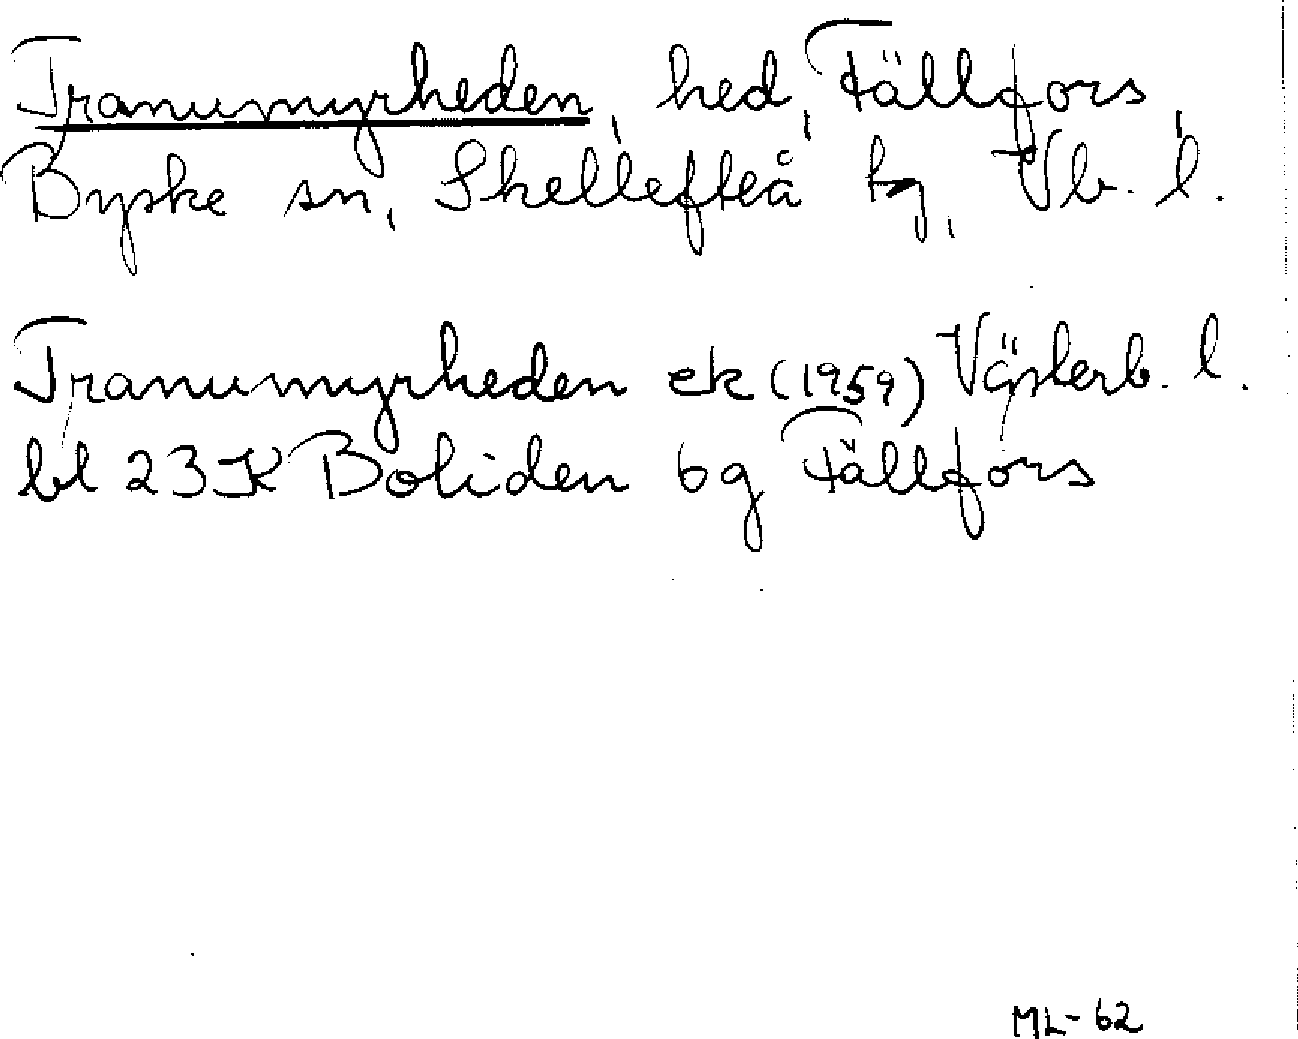 Tranumyrheden, hed, Fällfors,
Byske sn, Skellefteå tg, Vb. l.
Tranumyrheden ek (1959) Västerb. l.
bl 23 K Boliden 6g Fällfors
ML-62